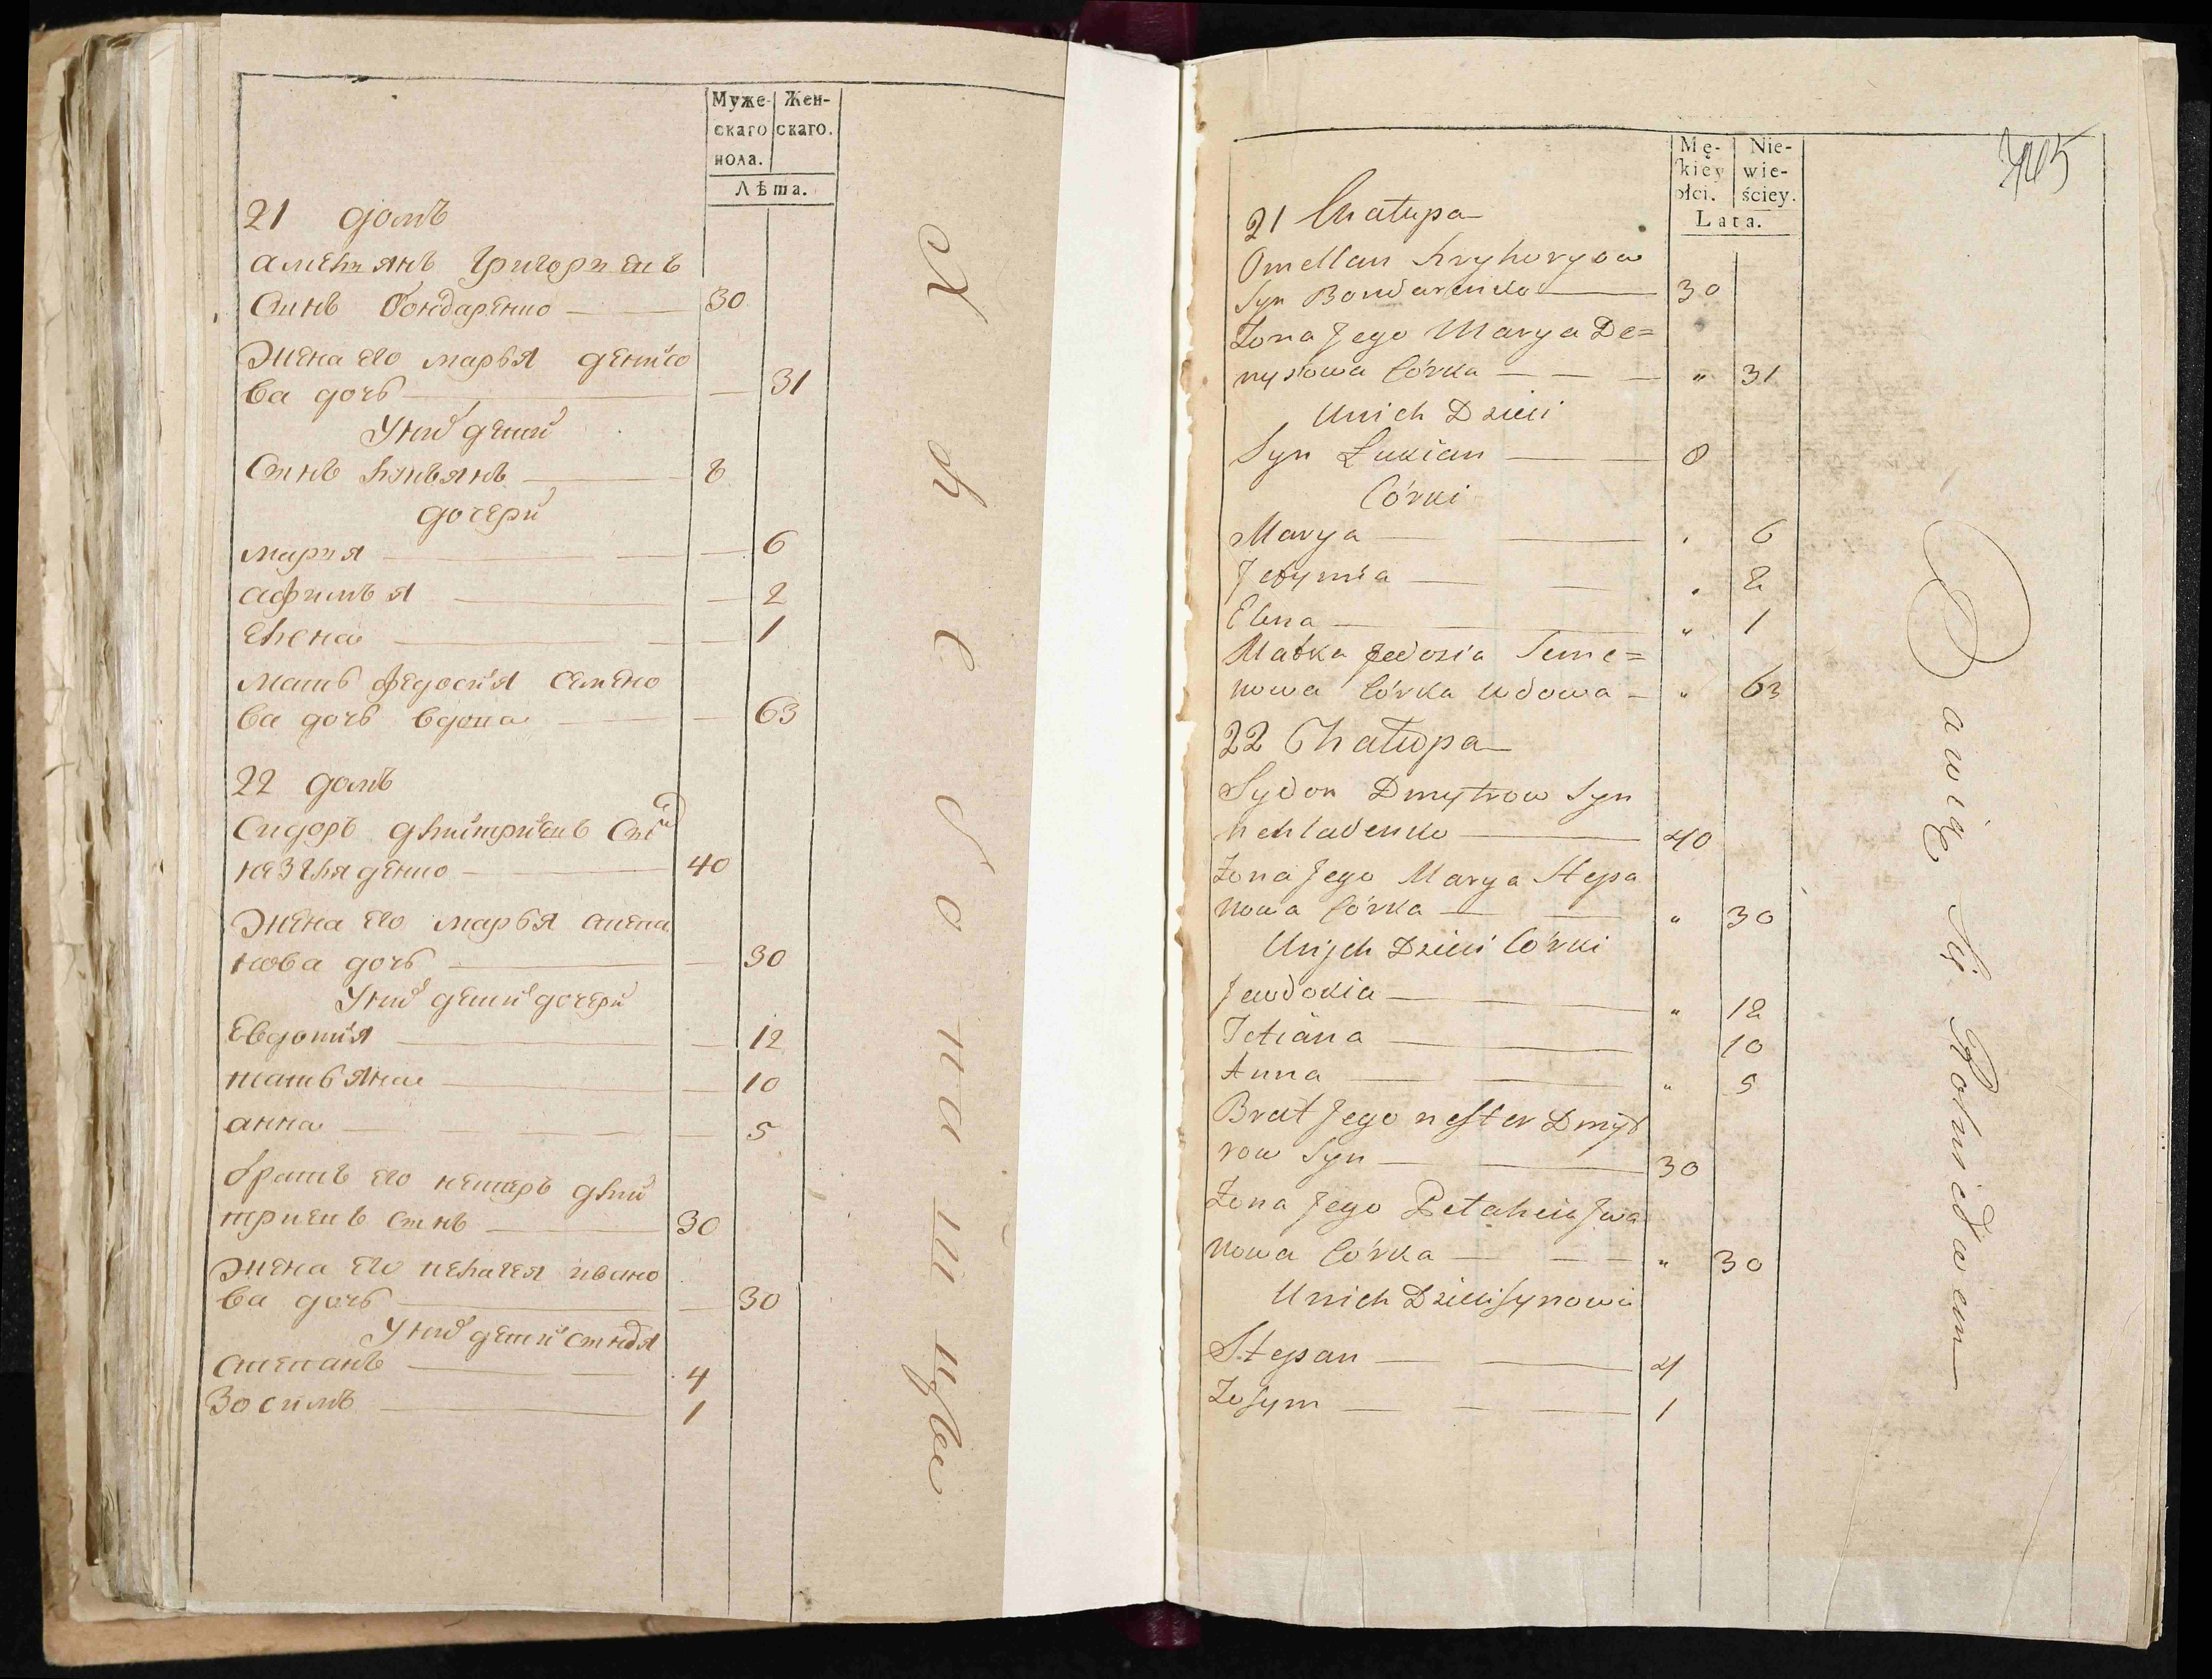 Муже- Жен-
скаго скаго.
пола.
Лѣта.
21 домъ
амельянъ григориевъ
Синъ бондаренко — 30
жена его марья денисо
ва дочь — 31
У них дети
Синъ лукьянъ — 8
дочери
мария — 6
афимья — 2
елена — 1
мать федосия семено
ва дочь вдова — 63
22 домъ
Сидоръ дмитриевъ Син
40
жена его марья степа
нова дочь — 30
У них дети дочери
Евдокия — 12
татьяна — 10
анна — 5
братъ его нестеръ дми
триевъ синъ — 30
жена его пелагея ивано
ва дочь — 30
У них дети синовя
степанъ — 4
Зосимъ — 1
Mę- Nie-
kiey wie-
płci. ściey.
Lata.
21 Chałupa
Omellan hryhoryow
Syn Bondarenko — 30
Zona Jego Marya De=
nysowa Córka — " 31
Unich Dzieci
Syn Łukian — 8
Córki
Marya — " 6
Jefymia — " 2
Elena — " 1
Matka fedosia Seme=
nowa Córka wdowa — " 63
22 Chałupa
Sydor Dmytrow Syn
nehladenko — 40
Zona Jego Marya Stepa
nowa Córka — " 30
Unich Dzieci Córki
Jewdokia — " 12
Tetiana — 10
Anna — " 5
Brat Jego nester Dmyt
row Syn — 30
Zona Jego Pelaheia Jwa
nowa Córka — " 30
Unich Dzieci synowie
Stepan — 4
Zosym — 1